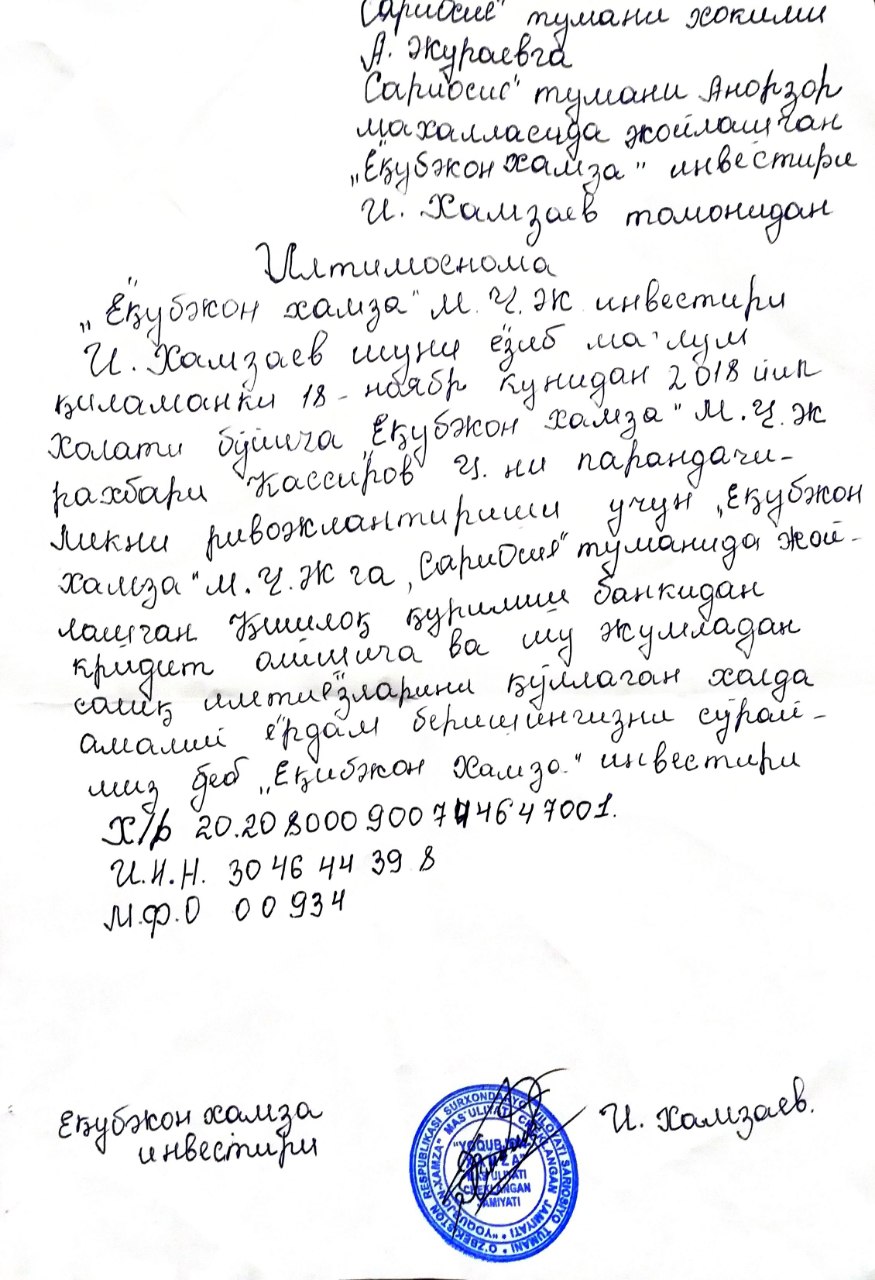 Сариосиё" тумани хокими
А. Жураевга
Сариосиё" тумани Анорзор
махалласида жойлашган
„Ёқубжон хамза" инвестири
И. Хамзаев томонидан
Илтимоснома
„Ёқубжон хамза" М.Ч.Ж инвестири
И. Хамзаев шуни ёзиб ма'лум
қиламанки 18-ноябр кунидан 2018 йил
холати бўйича „Ёқубжон хамза" М.Ч.Ж
рахбари Кассиров Ч. ни парандачи-
ликни ривожлантириши учун „Ёқубжон
хамза" М.Ч.Ж га „Сариосиё" туманида жой-
лашган Қишлоқ қурилиш банкидан
кридит олишига ва шу жумладан
солиқ имтиёзларини қўллаган холда
амалий ёрдам беришингизни сўрай-
миз деб „Ёқибжон Хамза" инвестири
Х/р 20.208000900744647001.
И.И.Н. 30 46 44 39 8
М.Ф.О 00934
Ёқубжон хамза
инвестири
И. Хамзаев.
O'ZBEKISTON RESPUBLIKASI SURXONDARYO VILOYATI SARIOSIYO TUMANI
"YOQUBJON-XAMZA" MAS'ULIYATI CHEKLANGAN JAMIYATI
"YOQUBJON-
XAMZA"
MAS'ULIYATI
CHEKLANGAN
JAMIYATI